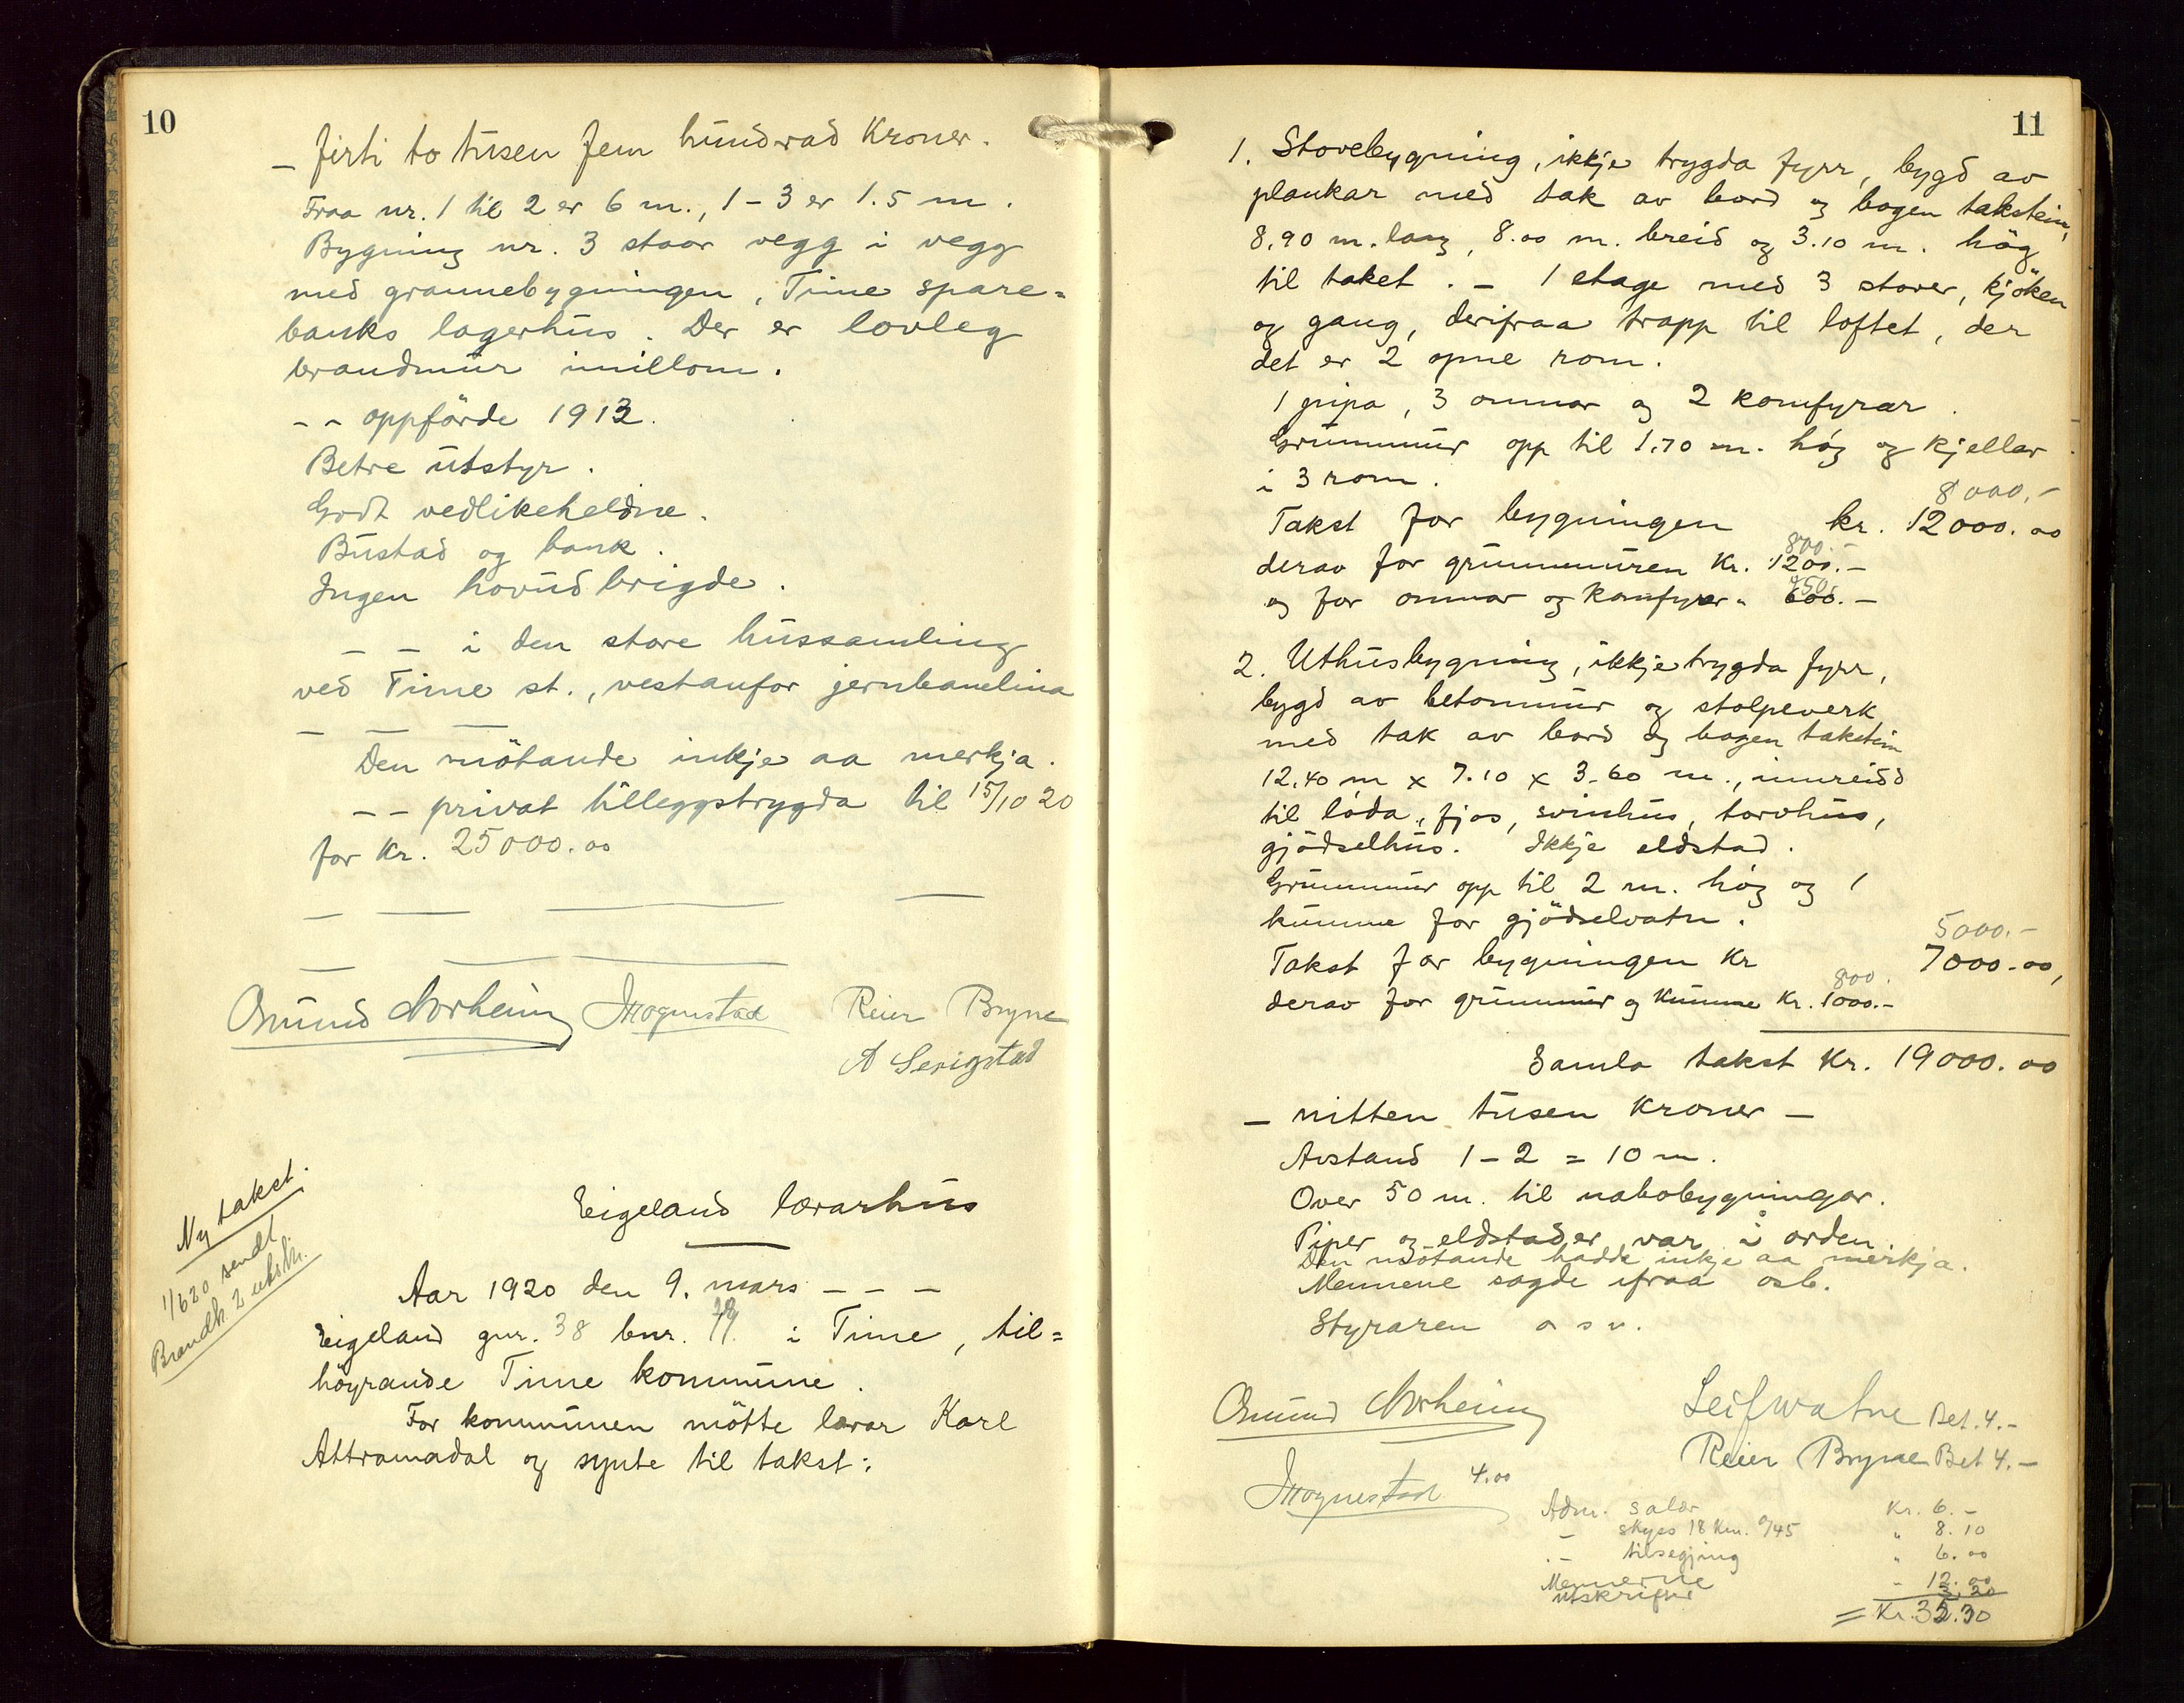 10
– firti to tusen fem hundrad Kroner.
Fraa nr. 1 til 2 er 6 m., 1–3 er 1.5 m.
Bygning nr. 3 staar vegg i vegg
med grannebygningen, Time spare=
banks lagerhus. Der er lovleg
brandmur imillom.
– – oppförde 1913.
Betre utstyr.
Godt vedlikeheldne.
Bustad og bank.
Ingen hovudbrigde.
– – i den store hussamling
ved Time st., vestanfor jernbanelina
– –
Den mötande inkje aa merkja.
– – privat tilleggstrygda til 15/10 20
for Kr. 25000.00
Osmund Norheim Reier Bryne
A Serigstad
Eigeland lærarhus
Ny takst.
1/6 20 sendt
Brandk. 2 utskr.
Aar 1920 den 9. mars – – –
Eigeland gnr. 38 bnr. i Time, til=
høyrande Time kommune.
For kommunen mötte lærar Karl
Attramadal og synte til takst:
11
1. Stovebygning, ikkje trygda fyrr, bygd av
plankar med tak av bord og bogen takstein,
8,90 m. lang, 8.00 m. breid og 3.10 m. hög
til taket. – 1 etage med 3 stover, kjöken
og gang, derifraa trapp til loftet, der
det er 2 opne rom.
1 pipa, 3 omnar og 2 komfyrar.
Grunnmur opp til 1.70 m. hög og kjellar
i 3 rom.
8000,–
Takst for bygningen kr. 12000.00
800.–
derav for grunnmuren Kr. 1200.–
450.
og for omnar og Komfyrer " 600.–
2. Uthusbygning, ikkje trygda fyrr,
bygd av betonmur og stolpeverk
med tak av bord og bogen takstein
12.40 m x 7.10 x 3.60 m., innreidd
til löda, fjos, svinhus, torvhus,
gjödselhus. Ikkje eldstad.
Grunnmur opp til 2 m. hög og 1
kumme for gjödselvatn.
5000.–
Takst for bygningen Kr 7000.00,
800.
derav for grunnmur og Kumme Kr. 1000.–
Samla takst Kr. 19000.00
– nitten tusen Kroner –
Avstand 1–2 = 10 m.
Over 50 m. til nabobygningar.
Piper og eldstader var i orden.
Den mötande hadde inkje aa merkja.
Mennene sagde ifraa osb.
Styraren o s v.
Osmund Norheim Leif Watne Bet. 4.–
Reier Bryne Bet 4.–
4.00
Adm. salær Kr. 6.–
– skyss 18 Km. a/45 " 8.10
– tilsegjing " 6.00
Mennerne " 12.00
utskrifter 3.20
= Kr. 35.30